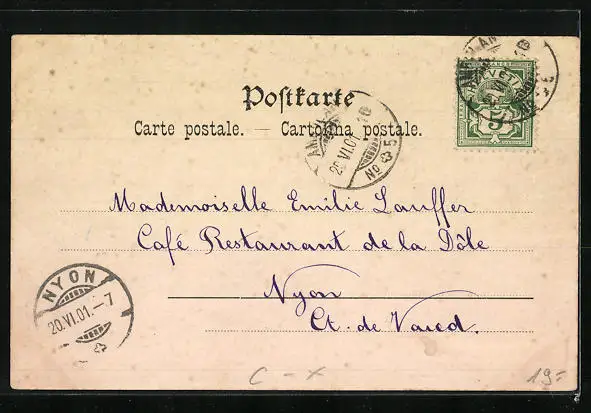 Postkarte
Carte postale. — Cartolina postale.
AMBULANT
20.VI.01.-10
No 5
HELVETIA
5
Mademoiselle Emilie Lauffer
Café Restaurant de la Dôle
Nyon
Ct. de Vaud.
NYON
20.VI.01.-7
C - X
19-